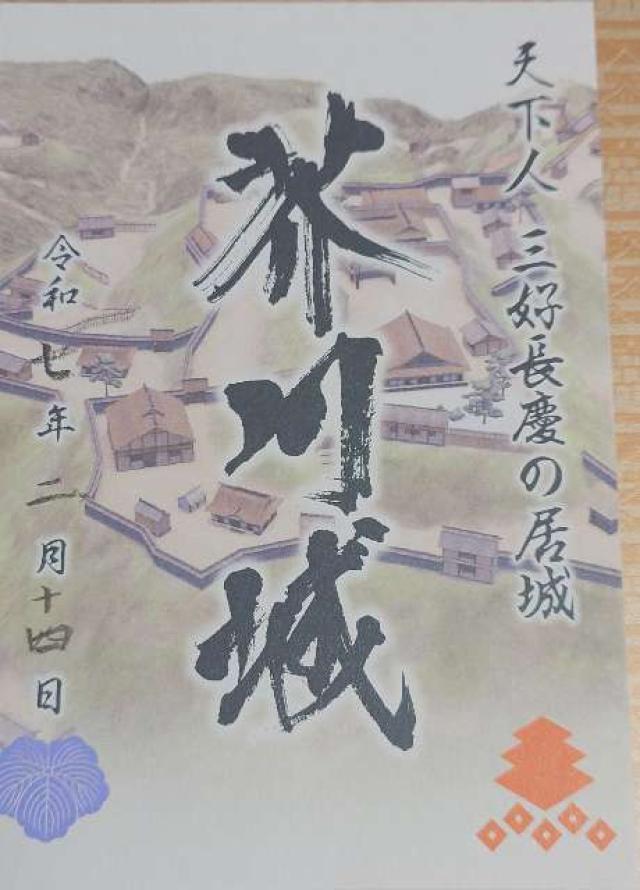 天下人 三好長慶の居城
芥川城
令和七年二月十四日